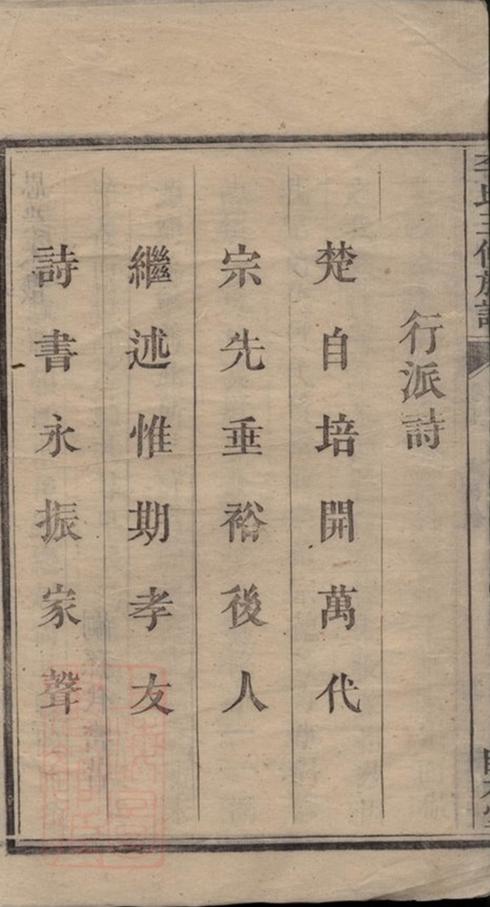 行派詩
楚自培開萬代
宗先垂裕後人
繼述惟期孝友
詩書永振家聲